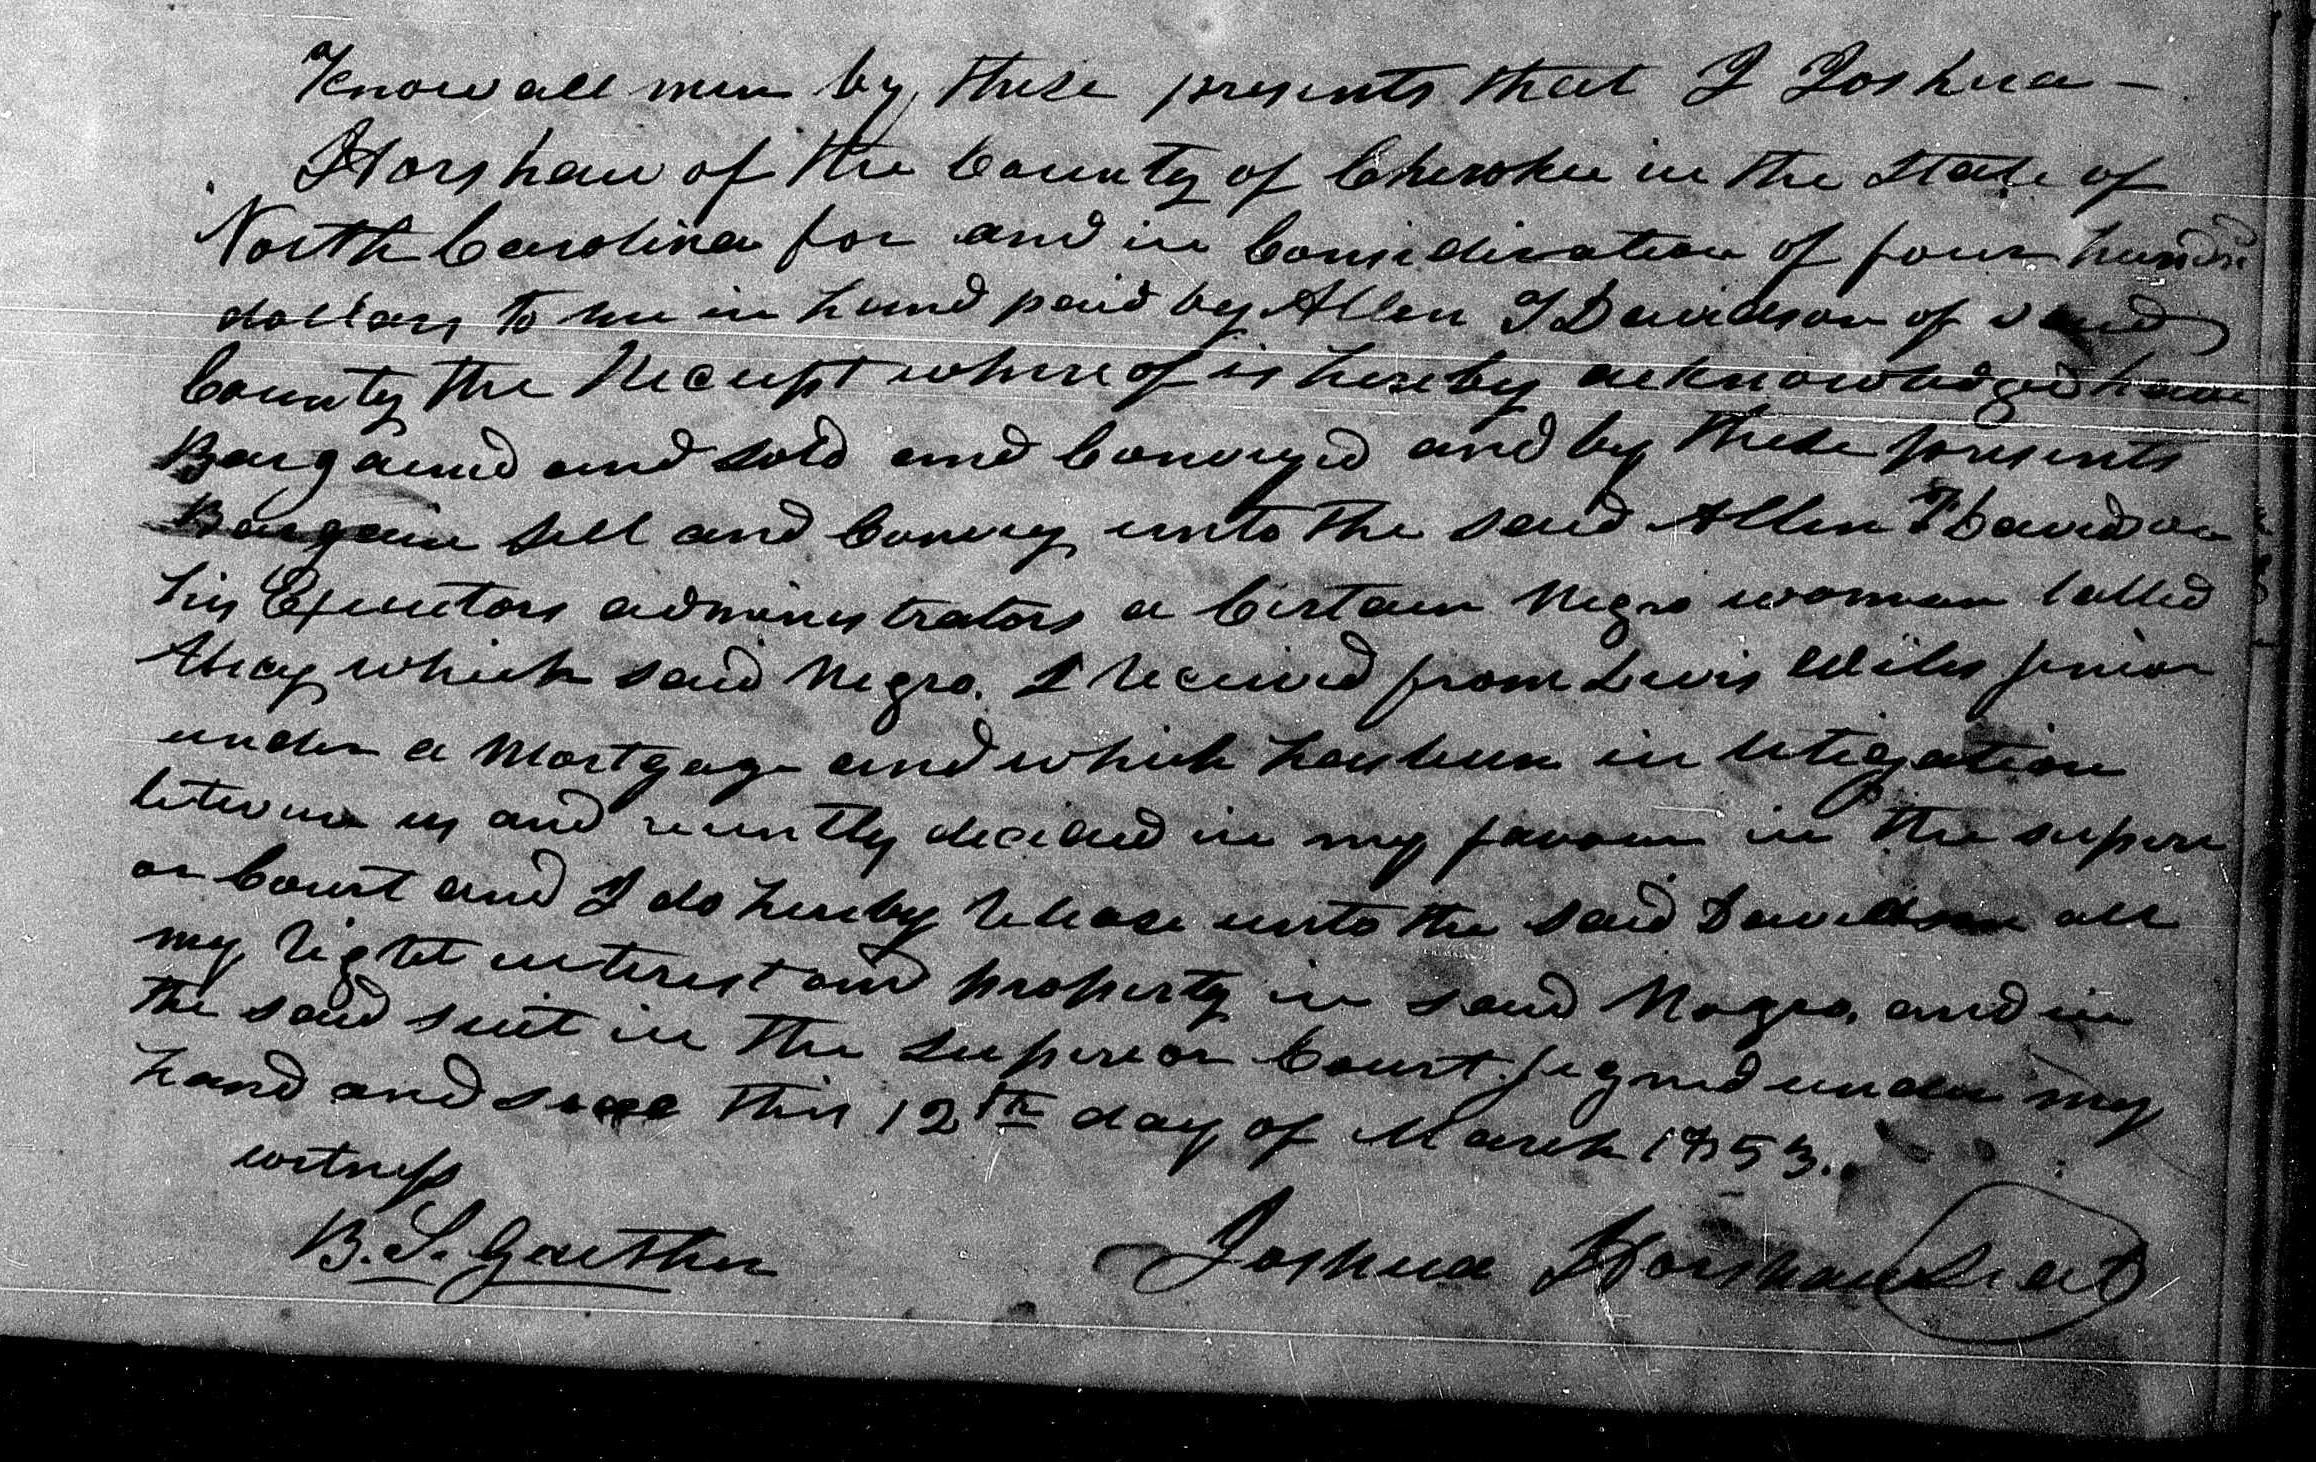 Know all men by these presents that I Joshua –
Harshaw of the County of Cherokee in the State of
North Carolina for and in Consideration of four hundred
dollars to me in hand paid by Allen T Davidson of said
County the Receipt where of is hereby acknowledged have
Bargained and sold and Conveyed and by these presents
Bargain sell and Convey unto the said Allen T Davidson
his Executors administrators a Certain Negro woman Called
which said Negro. I Received from Lewis Wiles senior
under a Mortgage and which has been in litigation
between us and recently decided in my favour in the superi
or Court and I do hereby Release unto the said Davidson all
my Right interest and property in said Negro, and in
the said suit in the superior Court. signed under my
hand and seal this 12th day of March 1853.
witness
B. S. Gaither Joshua Harshaw Seal